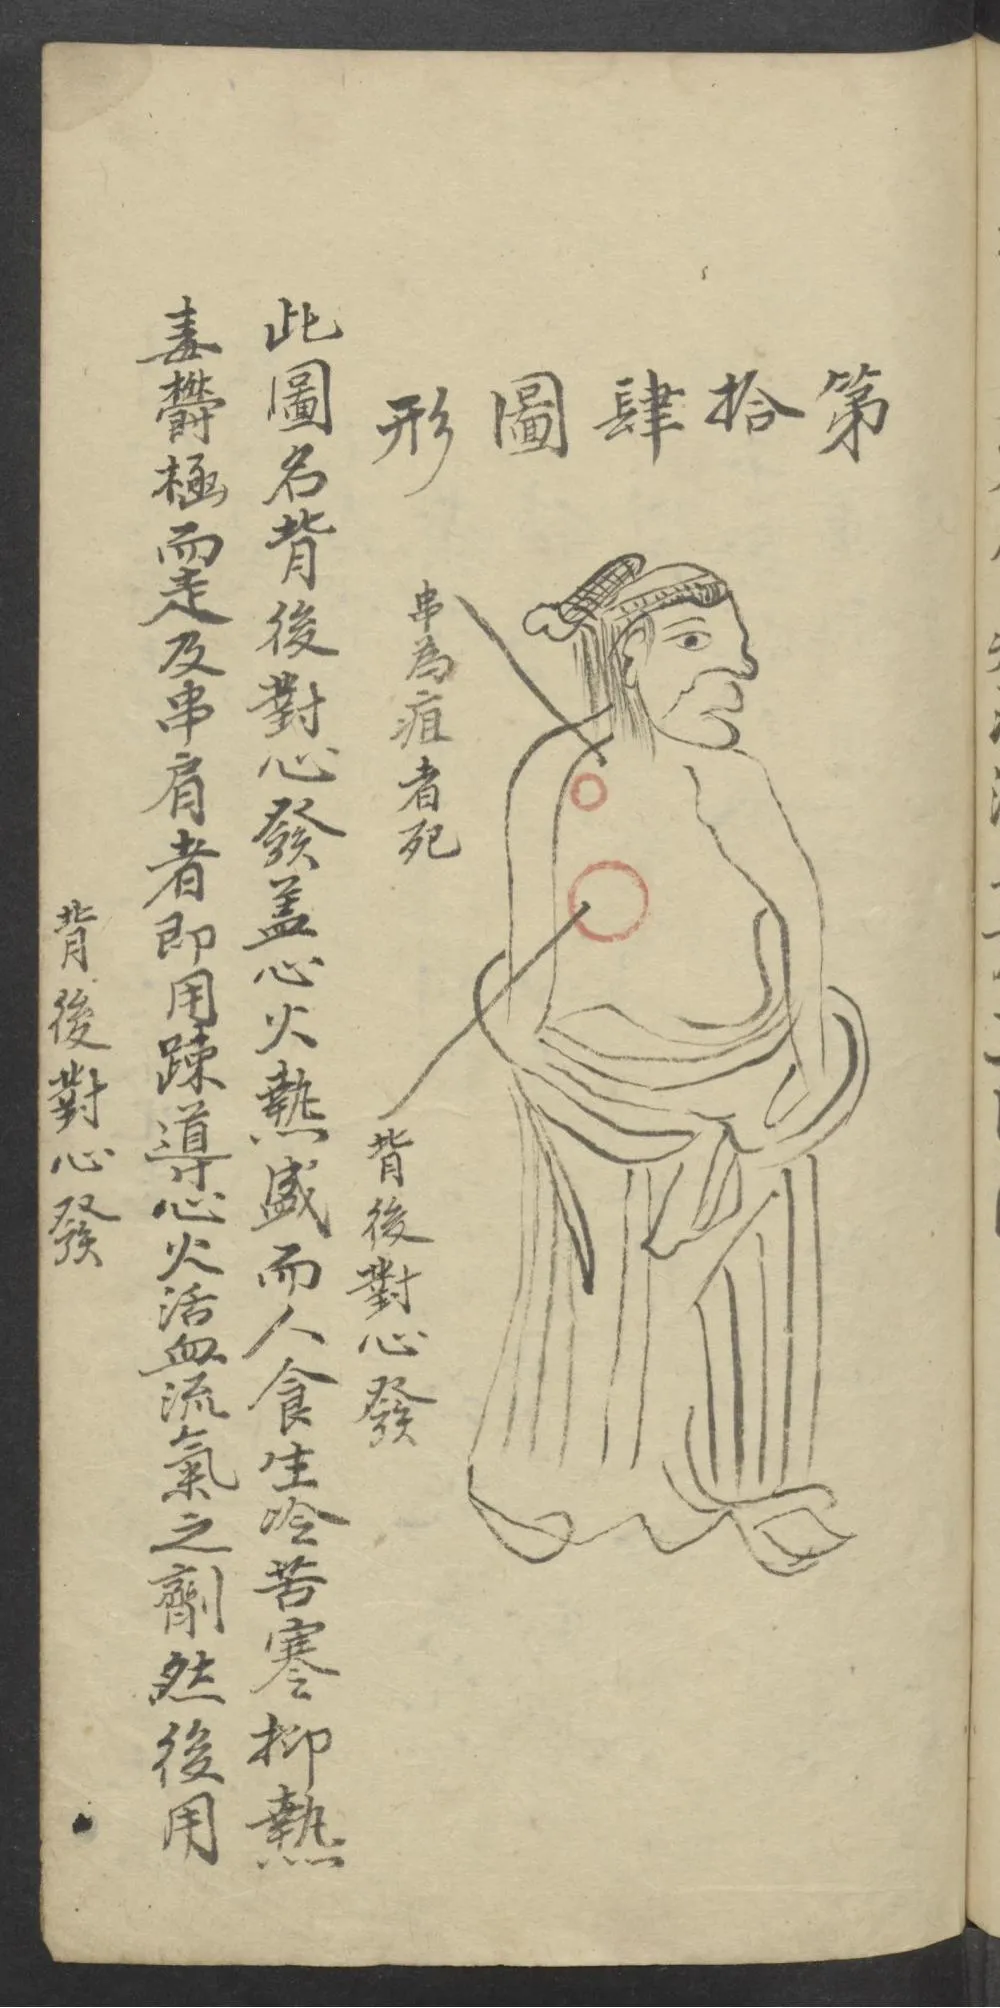 第拾肆圖形
串為疽者死
背後對心發
此圖名背後對心發蓋心火熱盛而人食生冷苦寒抑熱
毒欝極而走及串肩者即用踈導心火活血流氣之劑然後用
背後對心發